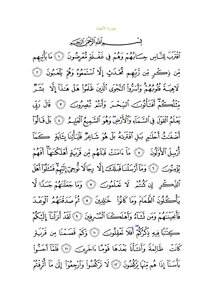 سورة الأنبياء
بسم الله الرحمن الرحيم
ٱقۡتَرَبَ لِلنَّاسِ حِسَابُهُمۡ وَهُمۡ فِي غَفۡلَةٖ مُّعۡرِضُونَ ١ مَا يَأۡتِيهِم
مِّن ذِكۡرٖ مِّن رَّبِّهِم مُّحۡدَثٍ إِلَّا ٱسۡتَمَعُوهُ وَهُمۡ يَلۡعَبُونَ ٢
لَاهِيَةٗ قُلُوبُهُمۡۗ وَأَسَرُّواْ ٱلنَّجۡوَى ٱلَّذِينَ ظَلَمُواْ هَلۡ هَٰذَآ إِلَّا بَشَرٞ
مِّثۡلُكُمۡۖ أَفَتَأۡتُونَ ٱلسِّحۡرَ وَأَنتُمۡ تُبۡصِرُونَ ٣ قَالَ رَبِّي
يَعۡلَمُ ٱلۡقَوۡلَ فِي ٱلسَّمَآءِ وَٱلۡأَرۡضِۖ وَهُوَ ٱلسَّمِيعُ ٱلۡعَلِيمُ ٤ بَلۡ قَالُوٓاْ
أَضۡغَٰثُ أَحۡلَٰمِۭ بَلِ ٱفۡتَرَىٰهُ بَلۡ هُوَ شَاعِرٞ فَلۡيَأۡتِنَا بِـَٔايَةٖ كَمَآ
أُرۡسِلَ ٱلۡأَوَّلُونَ ٥ مَآ ءَامَنَتۡ قَبۡلَهُم مِّن قَرۡيَةٍ أَهۡلَكۡنَٰهَآۖ أَفَهُمۡ
يُؤۡمِنُونَ ٦ وَمَآ أَرۡسَلۡنَا قَبۡلَكَ إِلَّا رِجَالٗا نُّوحِيٓ إِلَيۡهِمۡۖ فَسۡـَٔلُوٓاْ أَهۡلَ
ٱلذِّكۡرِ إِن كُنتُمۡ لَا تَعۡلَمُونَ ٧ وَمَا جَعَلۡنَٰهُمۡ جَسَدٗا لَّا
يَأۡكُلُونَ ٱلطَّعَامَ وَمَا كَانُواْ خَٰلِدِينَ ٨ ثُمَّ صَدَقۡنَٰهُمُ ٱلۡوَعۡدَ
فَأَنجَيۡنَٰهُمۡ وَمَن نَّشَآءُ وَأَهۡلَكۡنَا ٱلۡمُسۡرِفِينَ ٩ لَقَدۡ أَنزَلۡنَآ إِلَيۡكُمۡ
كِتَٰبٗا فِيهِ ذِكۡرُكُمۡۚ أَفَلَا تَعۡقِلُونَ ١٠ وَكَمۡ قَصَمۡنَا مِن قَرۡيَةٖ
كَانَتۡ ظَالِمَةٗ وَأَنشَأۡنَا بَعۡدَهَا قَوۡمًا ءَاخَرِينَ ١١ فَلَمَّآ أَحَسُّواْ
بَأۡسَنَآ إِذَا هُم مِّنۡهَا يَرۡكُضُونَ ١٢ لَا تَرۡكُضُواْ وَٱرۡجِعُوٓاْ إِلَىٰ مَآ أُتۡرِفۡتُمۡ